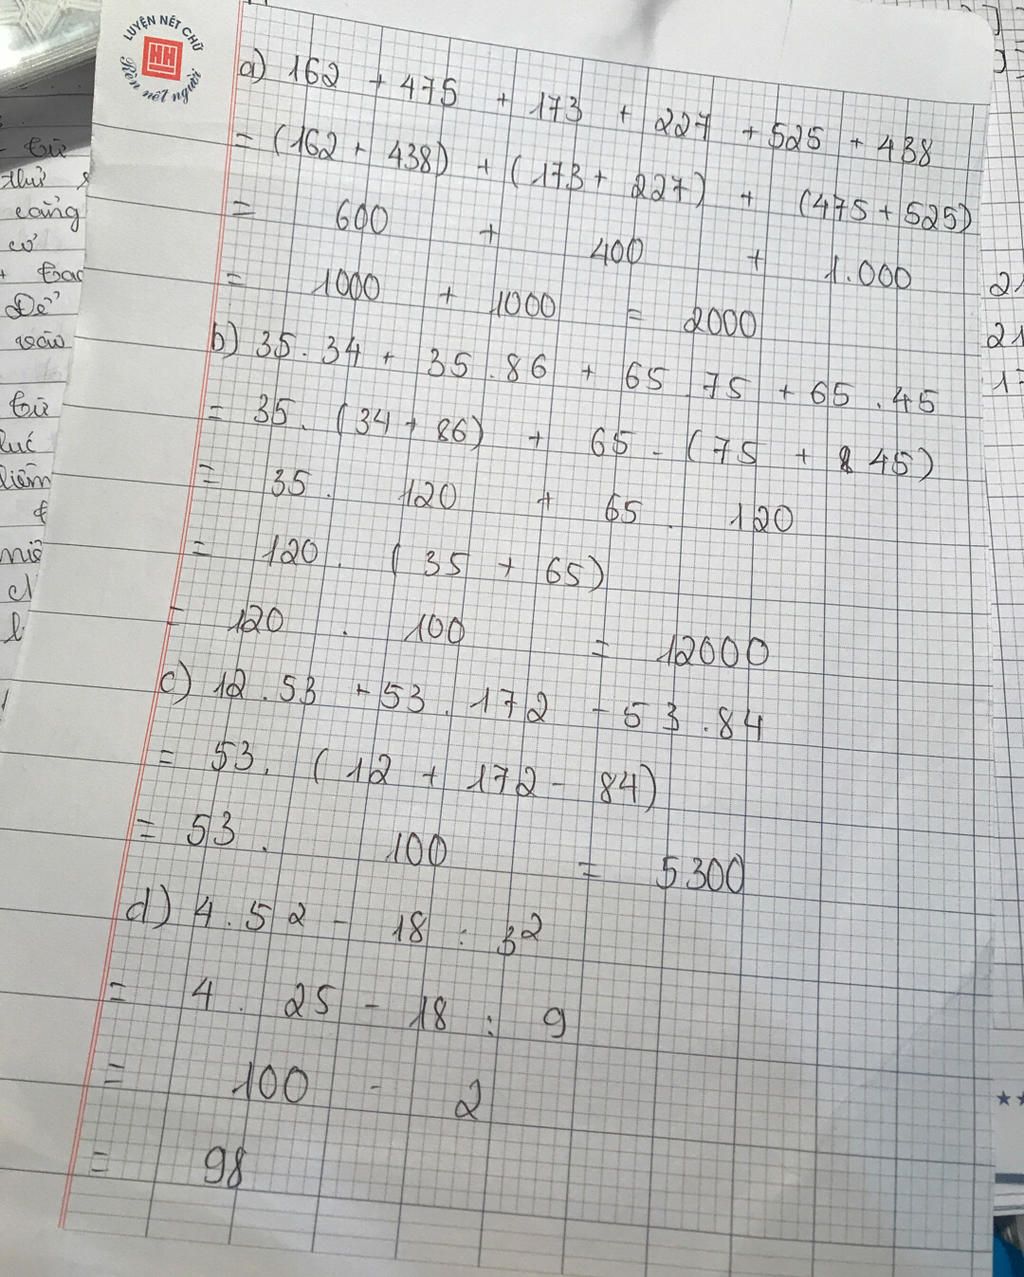 LUYỆN NÉT CHỮ
HH
Rèn nết người
a) 162 + 475 + 173 + 227 + 525 + 438
= (162 + 438) + (173 + 227) + (475 + 525)
= 600 + 400 + 1.000
= 1000 + 1000 = 2000
b) 35.34 + 35.86 + 65 75 + 65.45
= 35. (34 + 86) + 65 - (75 + 45)
= 35. 120 + 65. 120
= 120. (35 + 65)
= 120 . 100 = 12000
c) 12.53 + 53. 172 - 53.84
= 53. (12 + 172 - 84)
= 53. 100 = 5300
d) 4.5² - 18 : 3²
= 4. 25 - 18 : 9
= 100 - 2
= 98
từ
thứ
cảng
có
Để
vào
từ
lúc
liềm
21
21
17